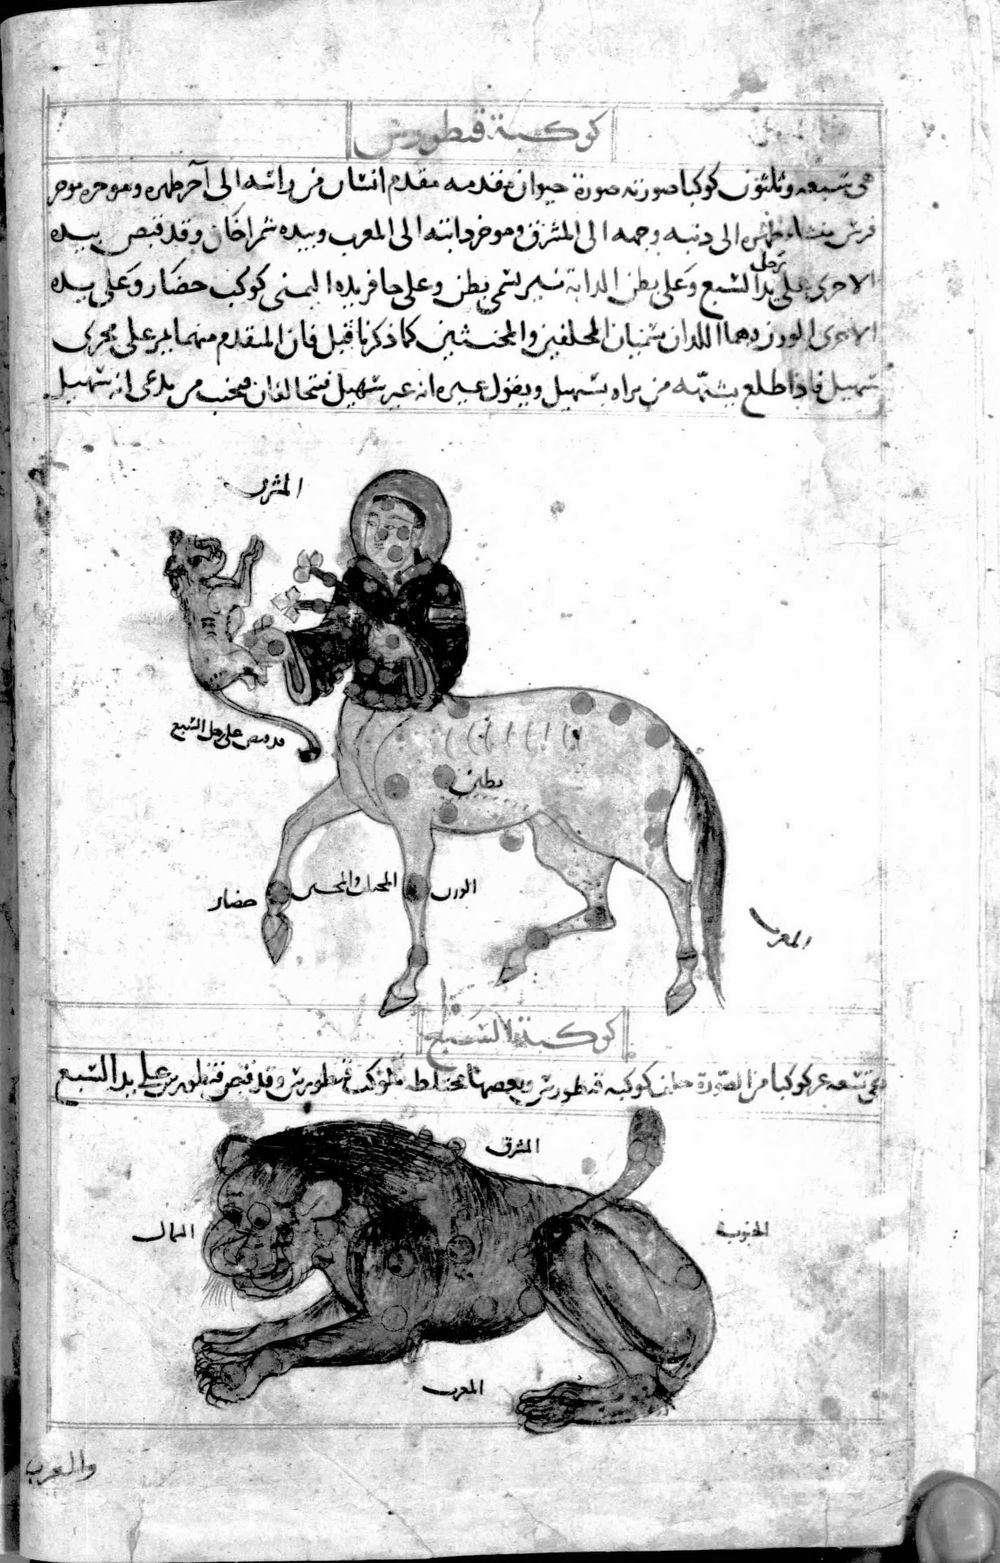 كوكبة قنطورس
هى سبعه وثلثون كوكبا صورته صورة حيوان مقدمه مقدم انسان من راسه الى آخر ظهره وموخره موخر
فرس من الى ذنبه وجهه الى المشرق وموخر دابته الى المغرب وبيده شمراخان وقد قبض بيده
رجل
الاخرى على يد السبع وعلى بطن الدابة نير يسمى بطن وعلى حافر يده اليمنى كوكب حضار وعلى يده
الاخرى الوزن وهما اللذان يسميان المحلفين والمحنثين كما ذكرنا قبل فان المتقدم منهما يمر على مجرى
سهيل فاذا طلع يشبهه من يراه بسهيل ويقول غيره انه غير سهيل فيتحالفان فيحنث من يدعى انه سهيل
المشرق
قد قبض على رجل السبع
بطن
الوزن
المحلفان والمحنثين
حضار
المغرب
كوكبة السبع
هى تسعه عشر كوكبا من الصورة خلف كوكبه قنطورس وبعضها مختلطه بكواكب قنطورس وقد قبض قنطورس على يد السبع
المشرق
الشمال
الجنوب
المغرب
والعرب